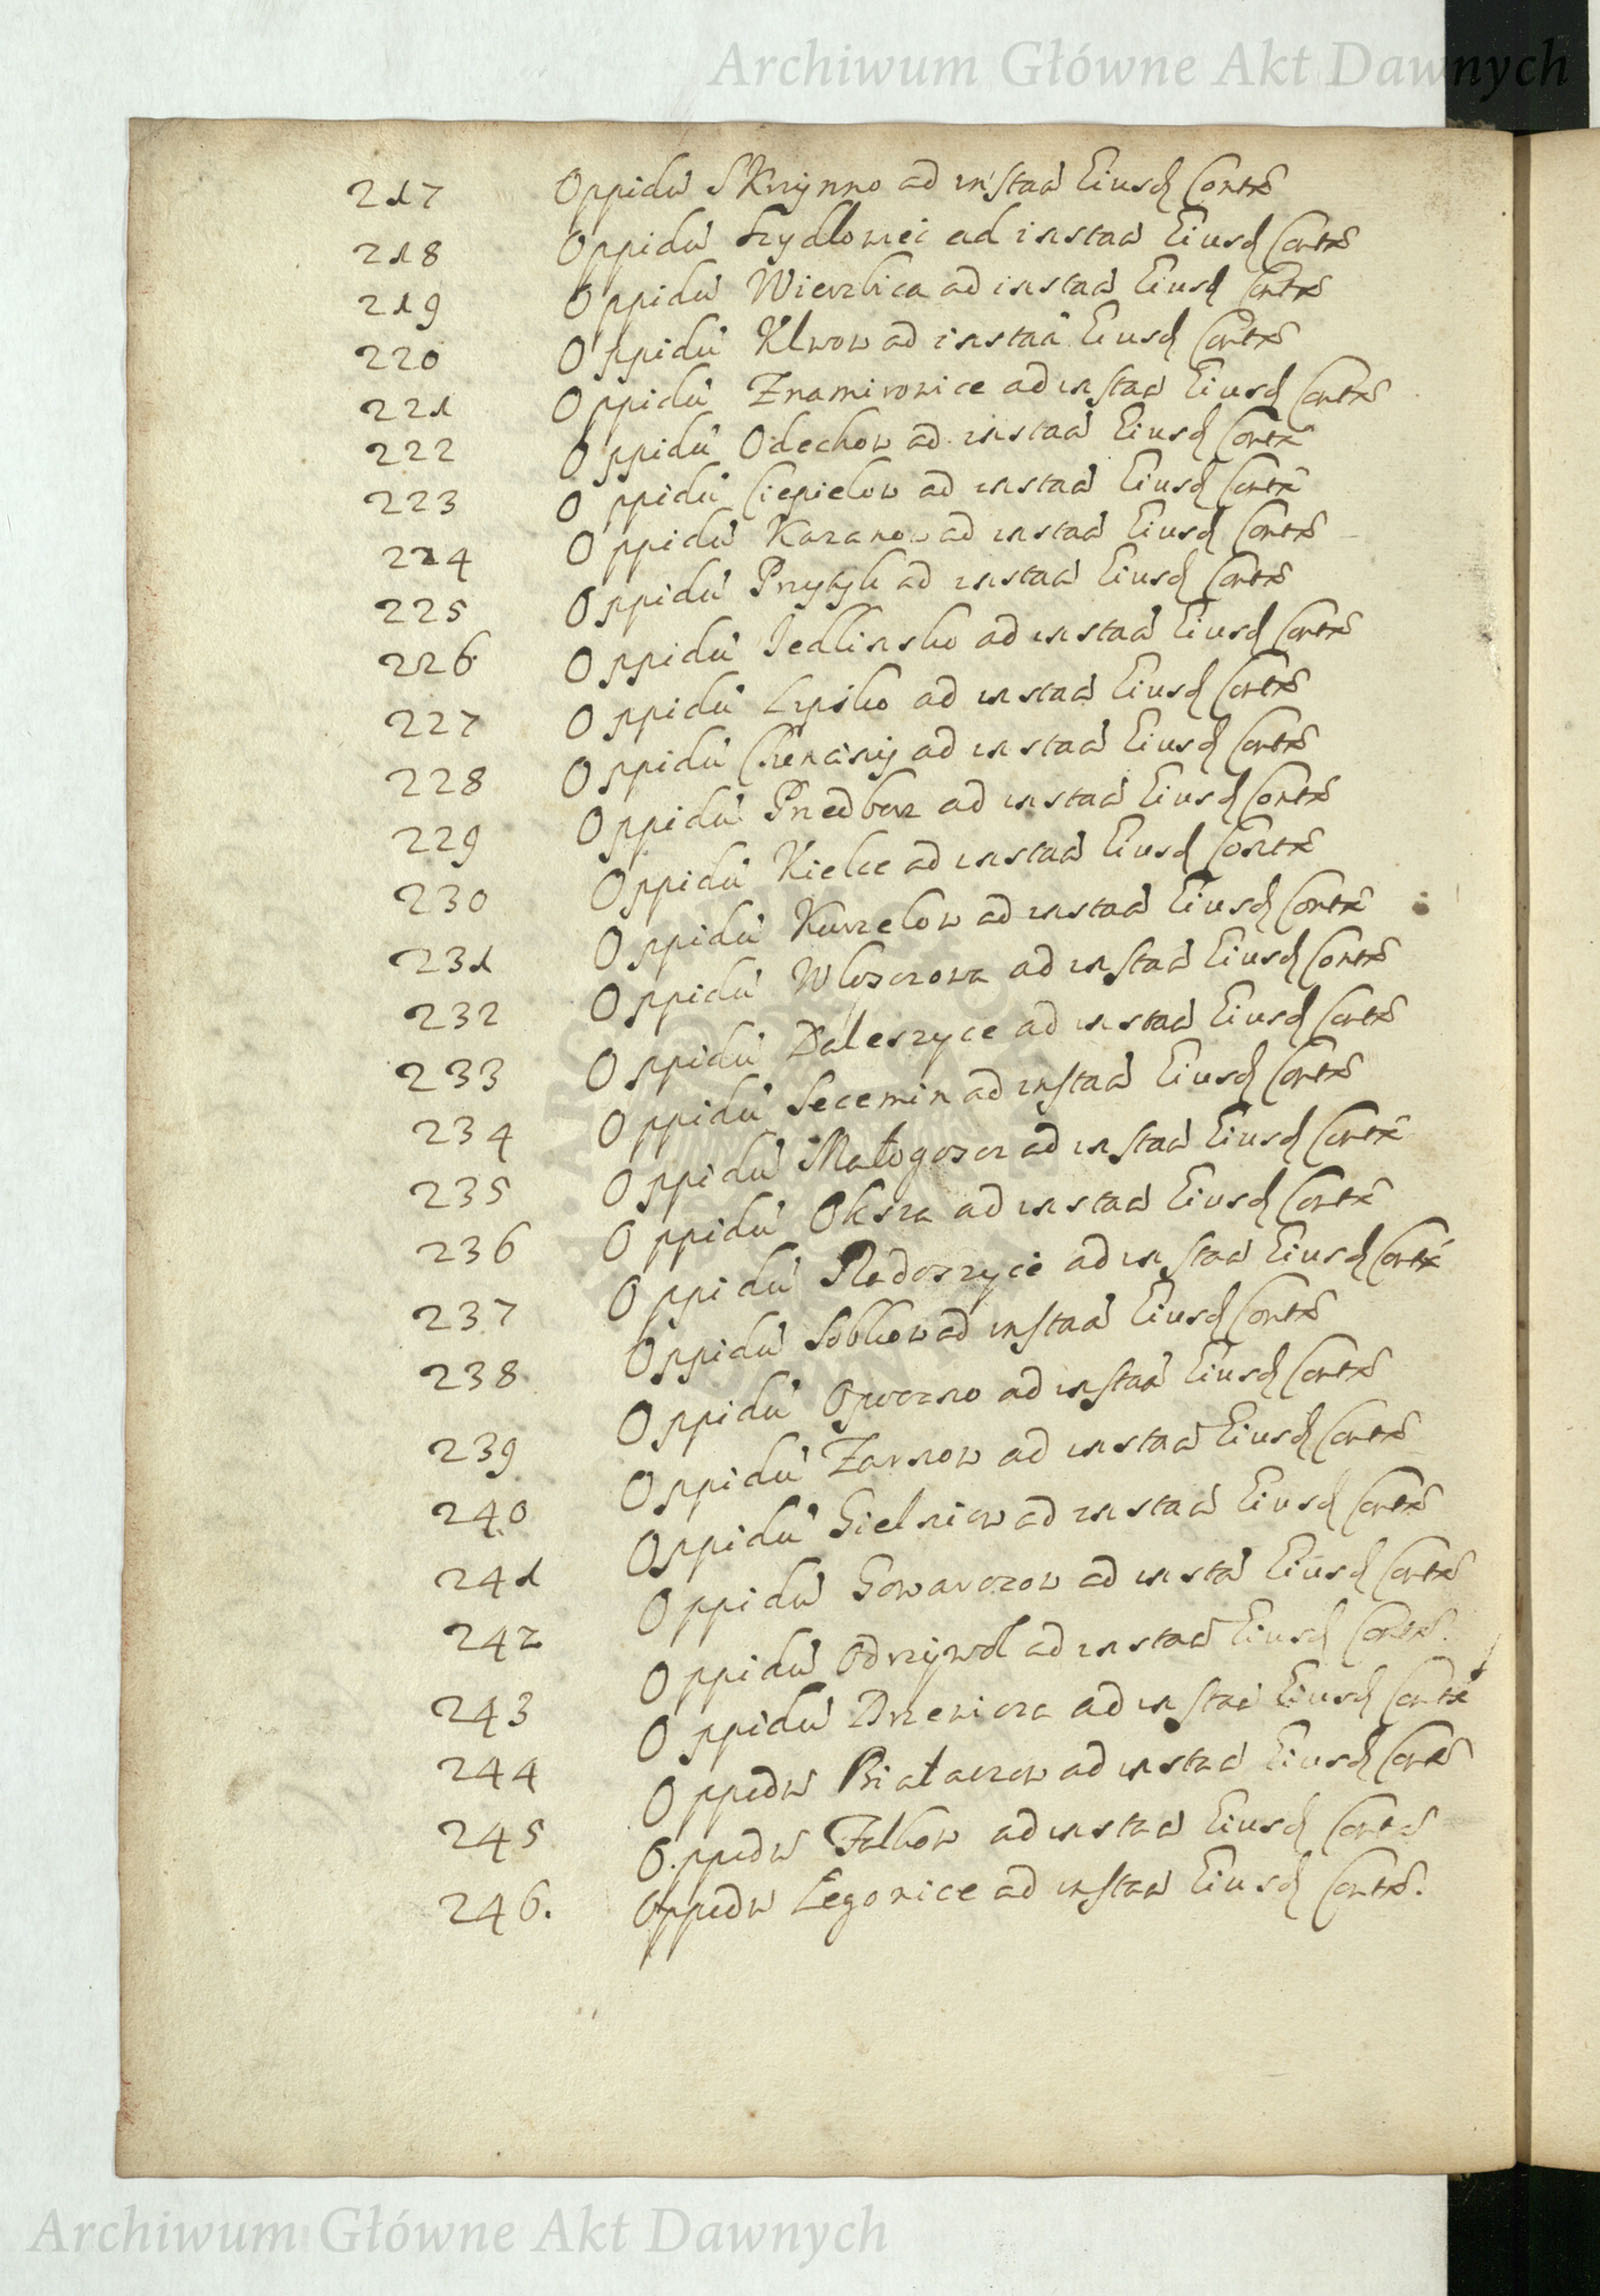 Archiwum Główne Akt Dawnych
217 Oppidu Skrzynno ad instaa Eiusd Contr
218 Oppidu Szydlowiec ad instaa Eiusd Contr
219 Oppidu Wierzbica ad instaa Eiusd Contr
220 Oppidu Klwow ad instaa Eiusd Contr
221 Oppidu Znamirowice ad instaa Eiusd Contr
222 Oppidu Odechow ad instaa Eiusd Contr
223 Oppidu Ciepielow ad instaa Eiusd Contr
224 Oppidu Kazanow ad instaa Eiusd Contr
225 Oppidu Przytyk ad instaa Eiusd Contr
226 Oppidu Jedlinsko ad instaa Eiusd Contr
227 Oppidu Lipsko ad instaa Eiusd Contr
228 Oppidu Chenciny ad instaa Eiusd Contr
229 Oppidu Przedborz ad instaa Eiusd Contr
230 Oppidu Kielce ad instaa Eiusd Contr
231 Oppidu Kurzelow ad instaa Eiusd Contr
232 Oppidu Wloszczowa ad instaa Eiusd Contr
233 Oppidu Daleszyce ad instaa Eiusd Contr
234 Oppidu Secemin ad instaa Eiusd Contr
235 Oppidu Małogoszcz ad instaa Eiusd Contr
236 Oppidu Oksza ad instaa Eiusd Contr
237 Oppidu Radoszyce ad instaa Eiusd Contr
238 Oppidu Sobkow ad instaa Eiusd Contr
239 Oppidu Opoczno ad instaa Eiusd Contr
240 Oppidu Zarnow ad instaa Eiusd Contr
241 Oppidu Gielniow ad instaa Eiusd Contr
242 Oppidu Gowarczow ad insta Eiusd Contr
243 Oppidu Odrzywol ad instaa Eiusd Contr
244 Oppidu Drzewicza ad instaa Eiusd Contr
245 Oppidu Białaczow ad instaa Eiusd Contr
246. Oppidu Falkow ad instaa Eiusd Contr
Oppidu Legonice ad instaa Eiusd Contr.
Archiwum Główne Akt Dawnych